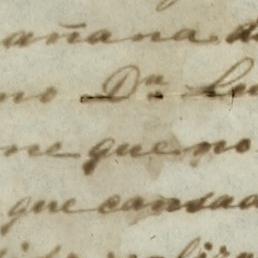 añana d
mo Dn Lu
ne que no
que cansad